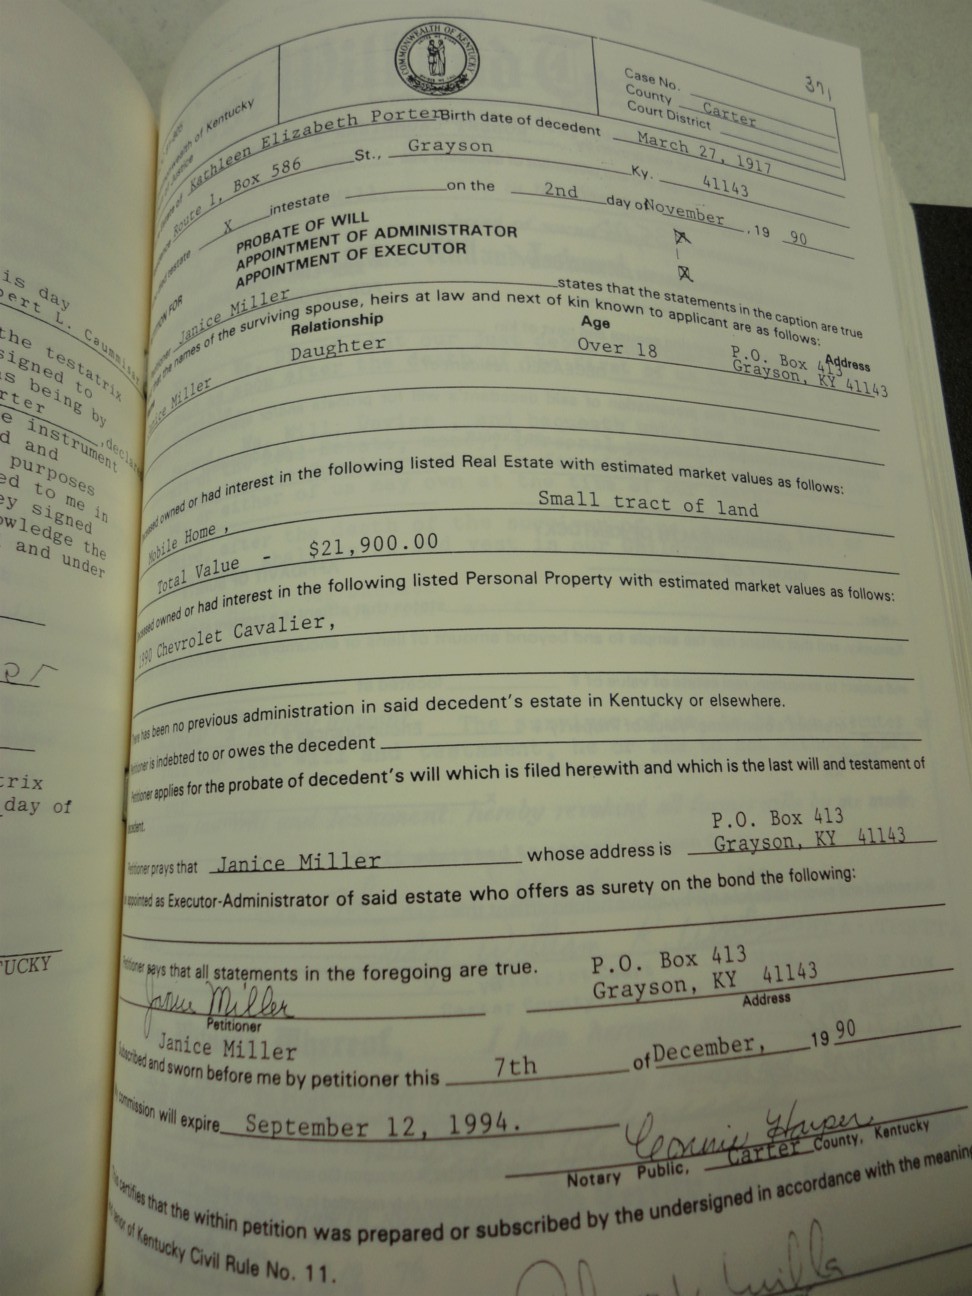 371
COMMONWEALTH OF KENTUCKY
Case No.
County Carter
Court District
wealth of Kentucky
Justice
Kathleen Elizabeth Porter Birth date of decedent March 27, 1917
Route 1, Box 586 St., Grayson Ky. 41143
X intestate on the 2nd day of November, 19 90
PROBATE OF WILL
APPOINTMENT OF ADMINISTRATOR
APPOINTMENT OF EXECUTOR
FOR
Janice Miller states that the statements in the caption are true
names of the surviving spouse, heirs at law and next of kin known to applicant are as follows:
Relationship Age Address
Janice Miller Daughter Over 18 P.O. Box 413
Grayson, KY 41143
owned or had interest in the following listed Real Estate with estimated market values as follows:
Mobile Home, Small tract of land
Total Value - $21,900.00
owned or had interest in the following listed Personal Property with estimated market values as follows:
1990 Chevrolet Cavalier,
has been no previous administration in said decedent's estate in Kentucky or elsewhere.
Petitioner is indebted to or owes the decedent
Petitioner applies for the probate of decedent's will which is filed herewith and which is the last will and testament of
P.O. Box 413
Petitioner prays that Janice Miller whose address is Grayson, KY 41143
appointed as Executor-Administrator of said estate who offers as surety on the bond the following:
Petitioner says that all statements in the foregoing are true. P.O. Box 413
Janice Miller Grayson, KY 41143
Petitioner Address
Janice Miller
Subscribed and sworn before me by petitioner this 7th of December, 19 90
commission will expire September 12, 1994.
Connie Harper
Notary Public, Carter County, Kentucky
certifies that the within petition was prepared or subscribed by the undersigned in accordance with the meaning
of Kentucky Civil Rule No. 11.
is day
the testatrix
signed to
being by
instrument
and
purposes
to me in
signed
the
and under
day of